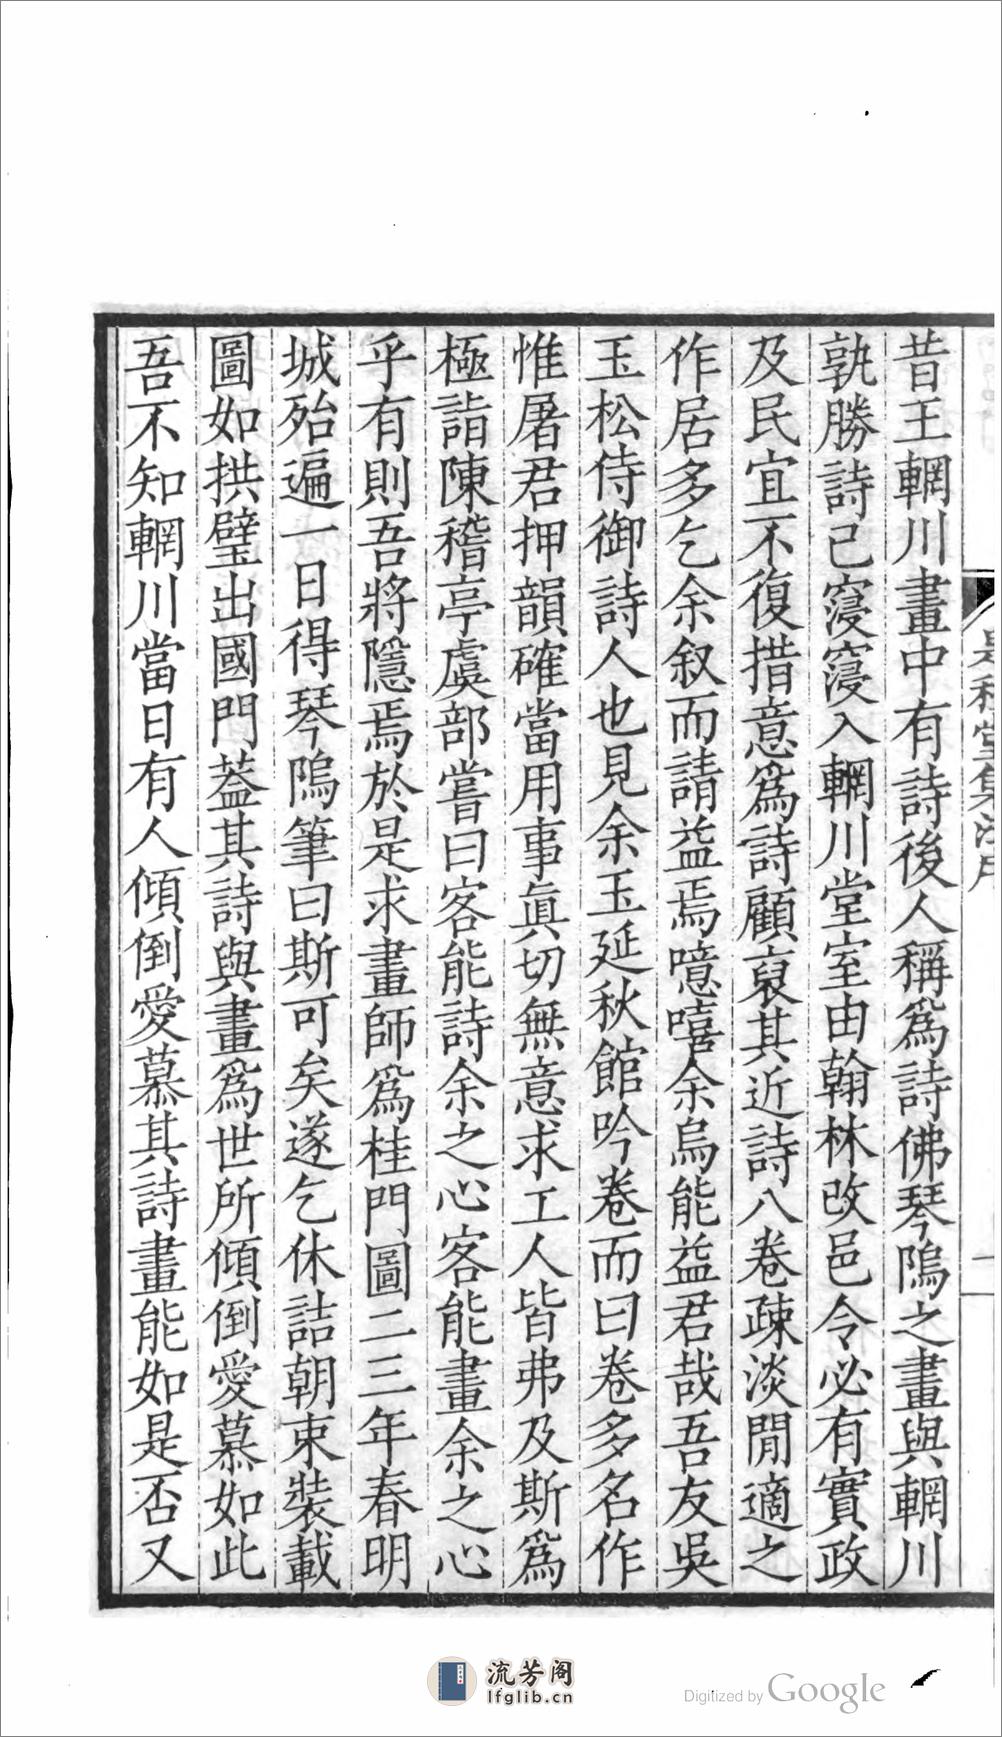 昔王輞川畫中有詩後人稱爲詩佛琴塢之畫與輞川
孰勝詩已寖寖入輞川堂室由翰林改邑令必有實政
及民宜不復措意爲詩顧裒其近詩八卷疎淡閒適之
作居多乞余叙而請益焉噫嘻余烏能益君哉吾友吳
玉松侍御詩人也見余玉延秋館吟卷而曰卷多名作
惟屠君押韻確當用事眞切無意求工人皆弗及斯爲
極詣陳稽亭虞部嘗曰客能詩余之心客能畫余之心
乎有則吾將隱焉於是求畫師爲桂門圖二三年春明
城殆遍一日得琴塢筆曰斯可矣遂乞休詰朝束裝載
圖如拱璧出國門葢其詩與畫爲世所傾倒愛慕如此
吾不知輞川當日有人傾倒愛慕其詩畫能如是否又
是程堂集
一
流芳阁
lfglib.cn
Digitized by Google